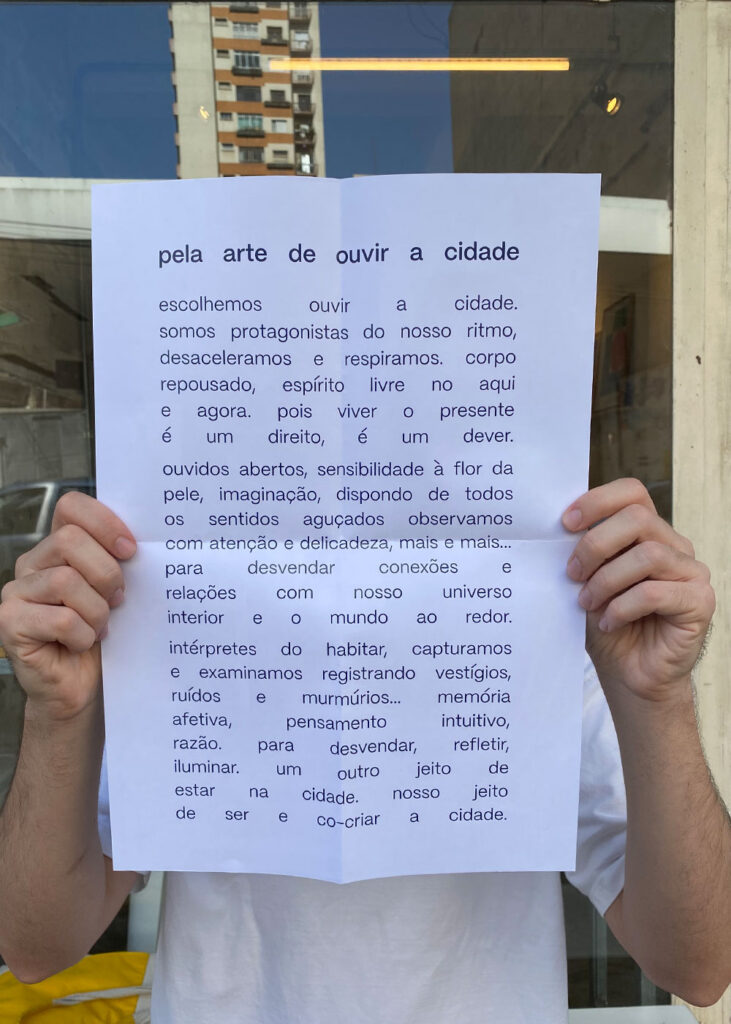 pela arte de ouvir a cidade
escolhemos ouvir a cidade.
somos protagonistas do nosso ritmo,
desaceleramos e respiramos. corpo
repousado, espírito livre no aqui
e agora. pois viver o presente
é um direito, é um dever.
ouvidos abertos, sensibilidade à flor da
pele, imaginação, dispondo de todos
os sentidos aguçados observamos
com atenção e delicadeza, mais e mais...
para desvendar conexões e
relações com nosso universo
interior e o mundo ao redor.
intérpretes do habitar, capturamos
e examinamos registrando vestígios,
ruídos e murmúrios... memória
afetiva, pensamento intuitivo,
razão. para desvendar, refletir,
iluminar. um outro jeito de
estar na cidade. nosso jeito
de ser e co-criar a cidade.